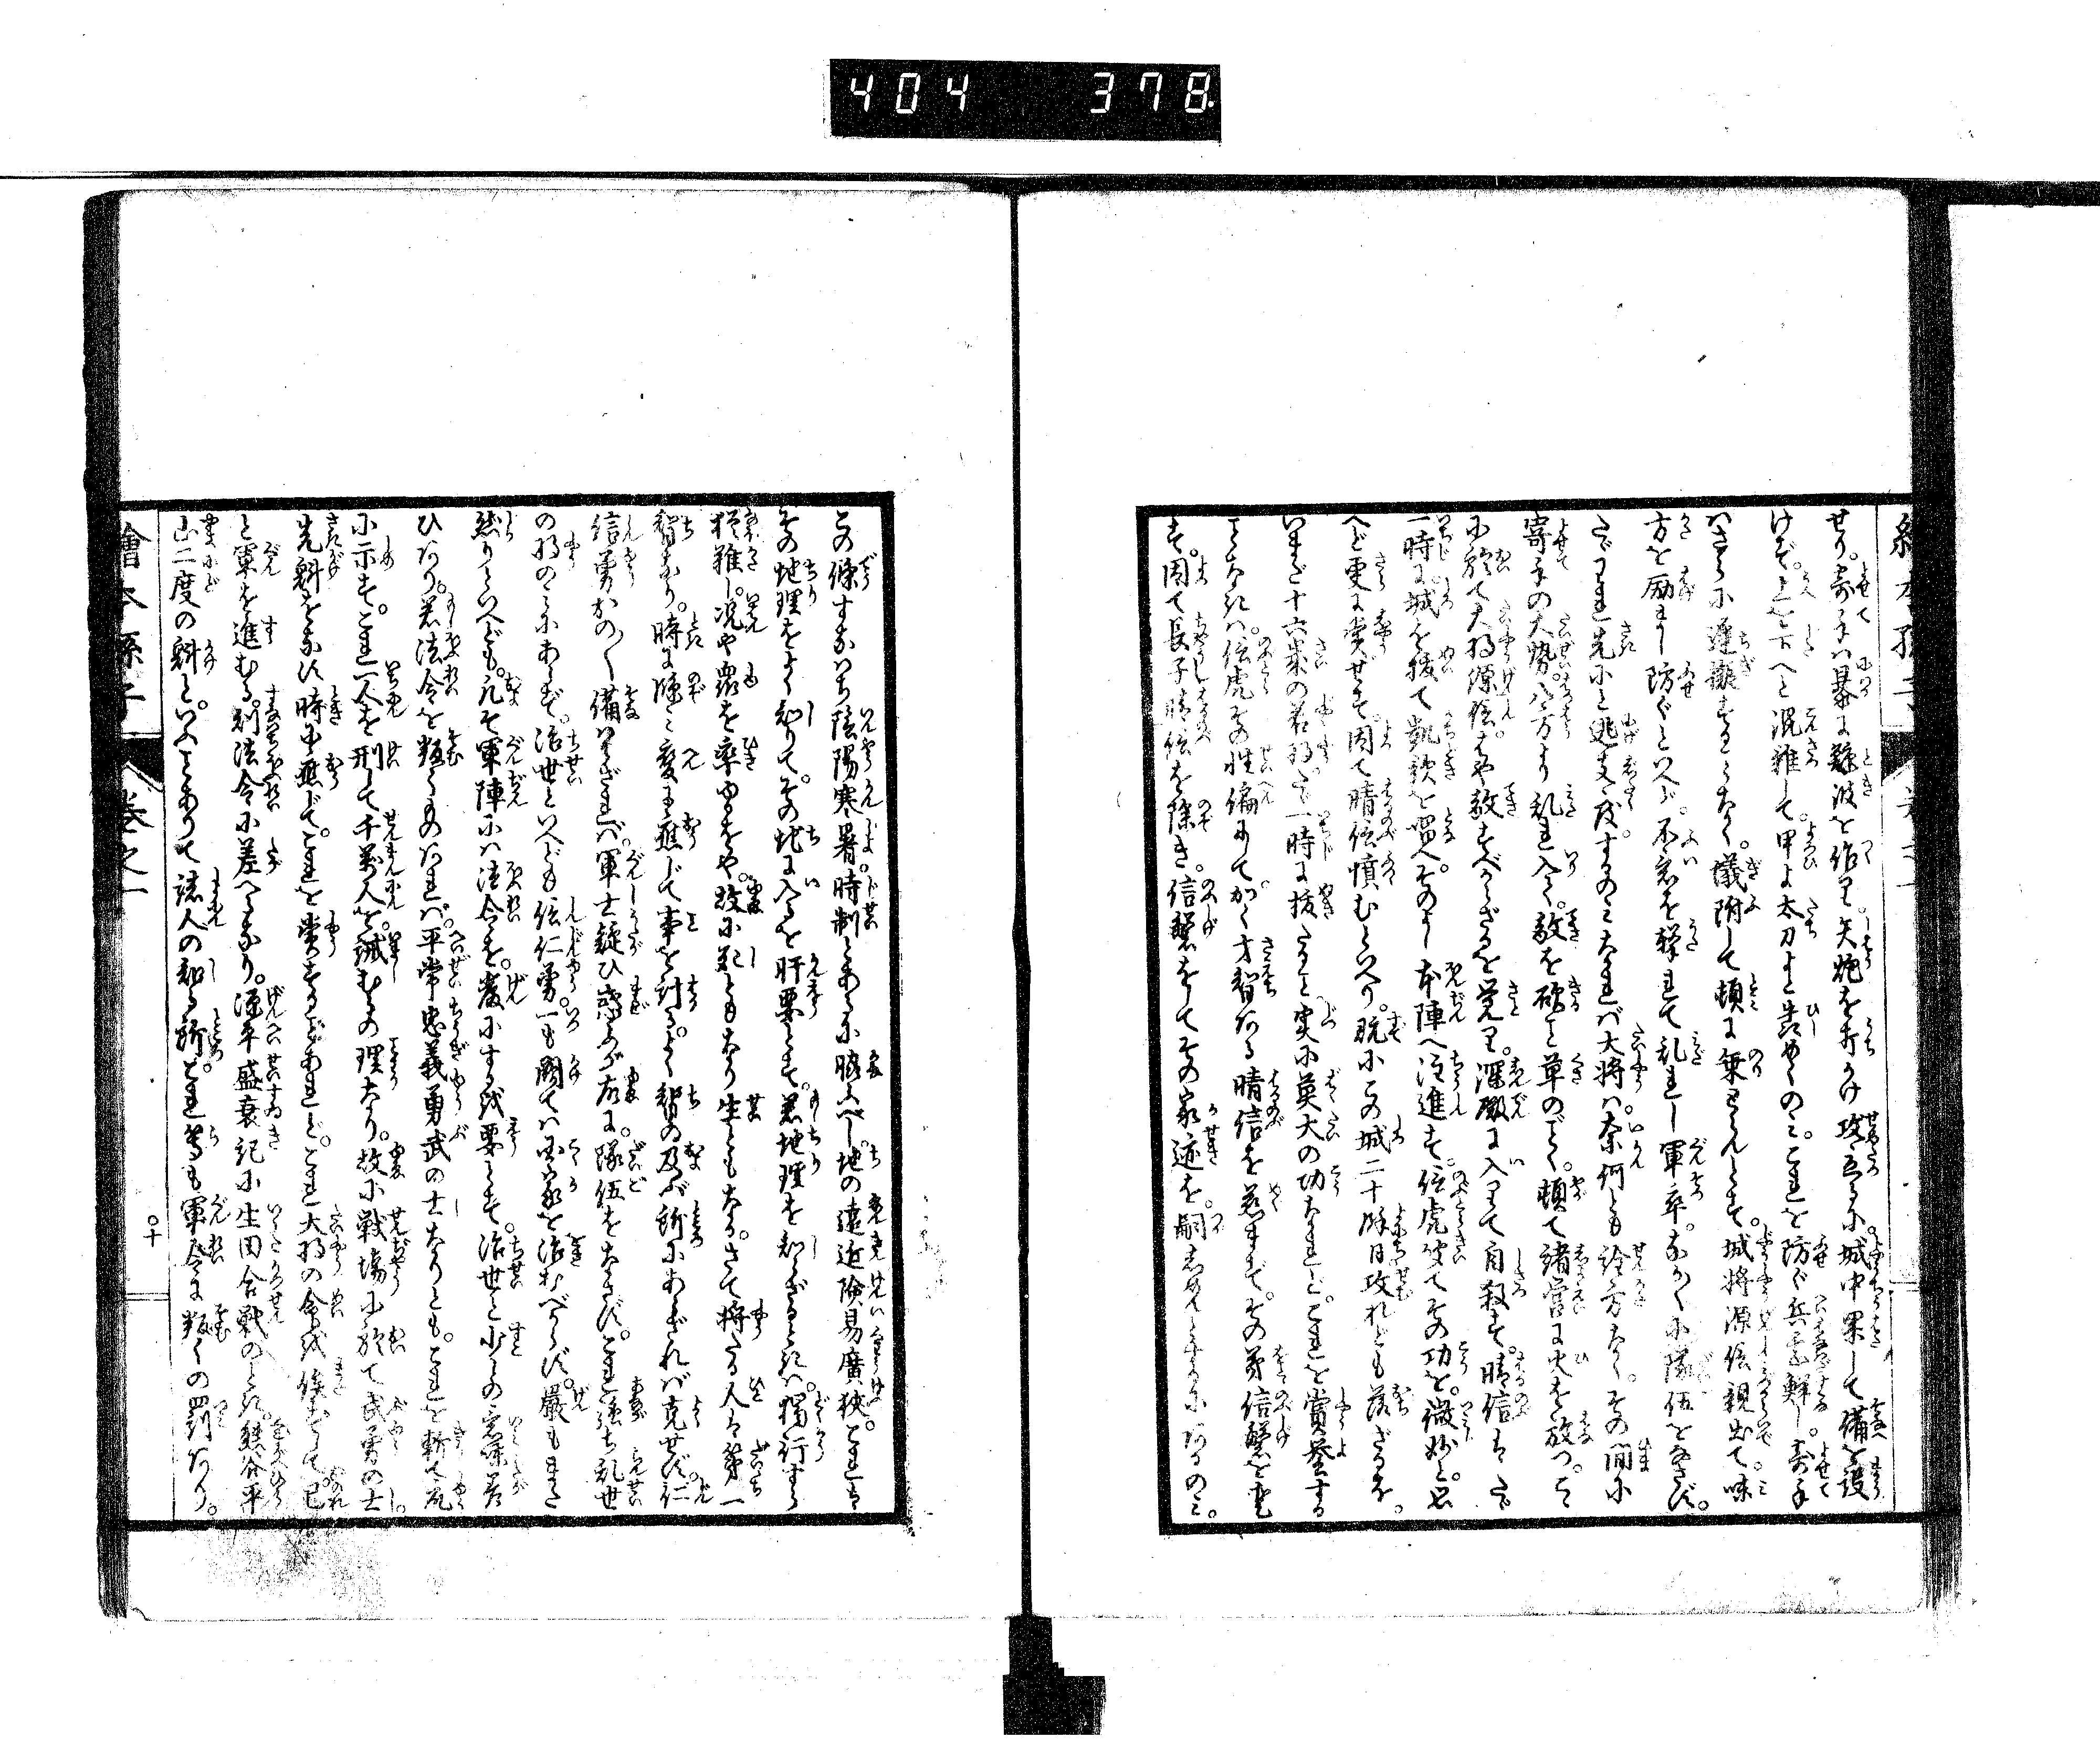 404 378
せり。寄手ハ暴に鯨波を作り。矢炮を打かけ攻立るに。城中果して備を設
けず。上を下へと混雑して。甲よ太刀よと犇めくのミ。これを防ぐ兵士鮮し。寄手
ハさらに遅疑することなく。蟻附して頓に乗とらんとす。城将源信親出て。味
方を励まし防ぐといへど。不意を撃れて乱れし軍卒。なかく小隊伍をなさず。
たゞわれ先にと逃支度するのミなれバ大将ハ。奈何とも詮方なく。その間に
寄手の大勢。八方より乱れ入り。敵を砍こと草のごとく。頓て諸営に火を放つ。こゝ
に於て大将源信。はや敵すべからざるを覚り。深殿に入りて自殺す。晴信はたゞ
一時に城を抜て凱歌を唱へ。そのよし本陣へ注進す。信虎却てその功を。微妙と。思
へど更に賞ぜず。因て晴信憤むといへり。既にこの城二十餘日攻れども落ざるを。
いまだ十六歳の若将。たゞ一時に抜たること実に莫大の功なれど。これを賞誉する
ことなきハ。信虎その性偏にして。かく才智ある晴信を悪まず。その弟信繁を愛
す。因て長子晴信を除き。信繁をしてその家迹を。嗣しめんとするにあるのミ。
この條すなハち陰陽寒暑。時制とあるに勝ふべし。地の遠近険易廣狭。これは
その地理をよく知りて。その地に入るを肝要とす。若地理を知らざるときハ。独行すら
猶難し。况や衆を率ゆるをや。故に死ともなり生ともなる。さて将たる人は第一
智なり。時に臨ミ変に應じて事を計る。その智の及ぶ所にあらざれバ克せず。仁
信勇おの〱備ハらざれバ。軍士疑ひ惑ふが故に。隊伍をなさず。これ強ち乱世
の将のミにあらず。治世といへども信仁勇。一も闕てハ国家を治むべからず。嚴もまた
然りといへども。凡そ軍陣にハ法令を。嚴にするを要とす。治世と少しの意味差
ひあり。若法令を叛くものあれバ。平常忠義勇武の士なりとも。これを斬て衆
に示す。これ一人を刑して千萬人を誡むるの理なり。故に戦場に於て武勇の士
先魁をなす時に應じて。これを賞するなどあれど。これ大将の命を俟ずして。已
と軍を進むる。則法令に差へるなり。源平盛衰記に生田合戦のとき。熊谷平
山二度の魁と。いふことありて諸人の知る所。これ等も軍令に叛くの罰あり。
繪本孫子 巻之一
〇十